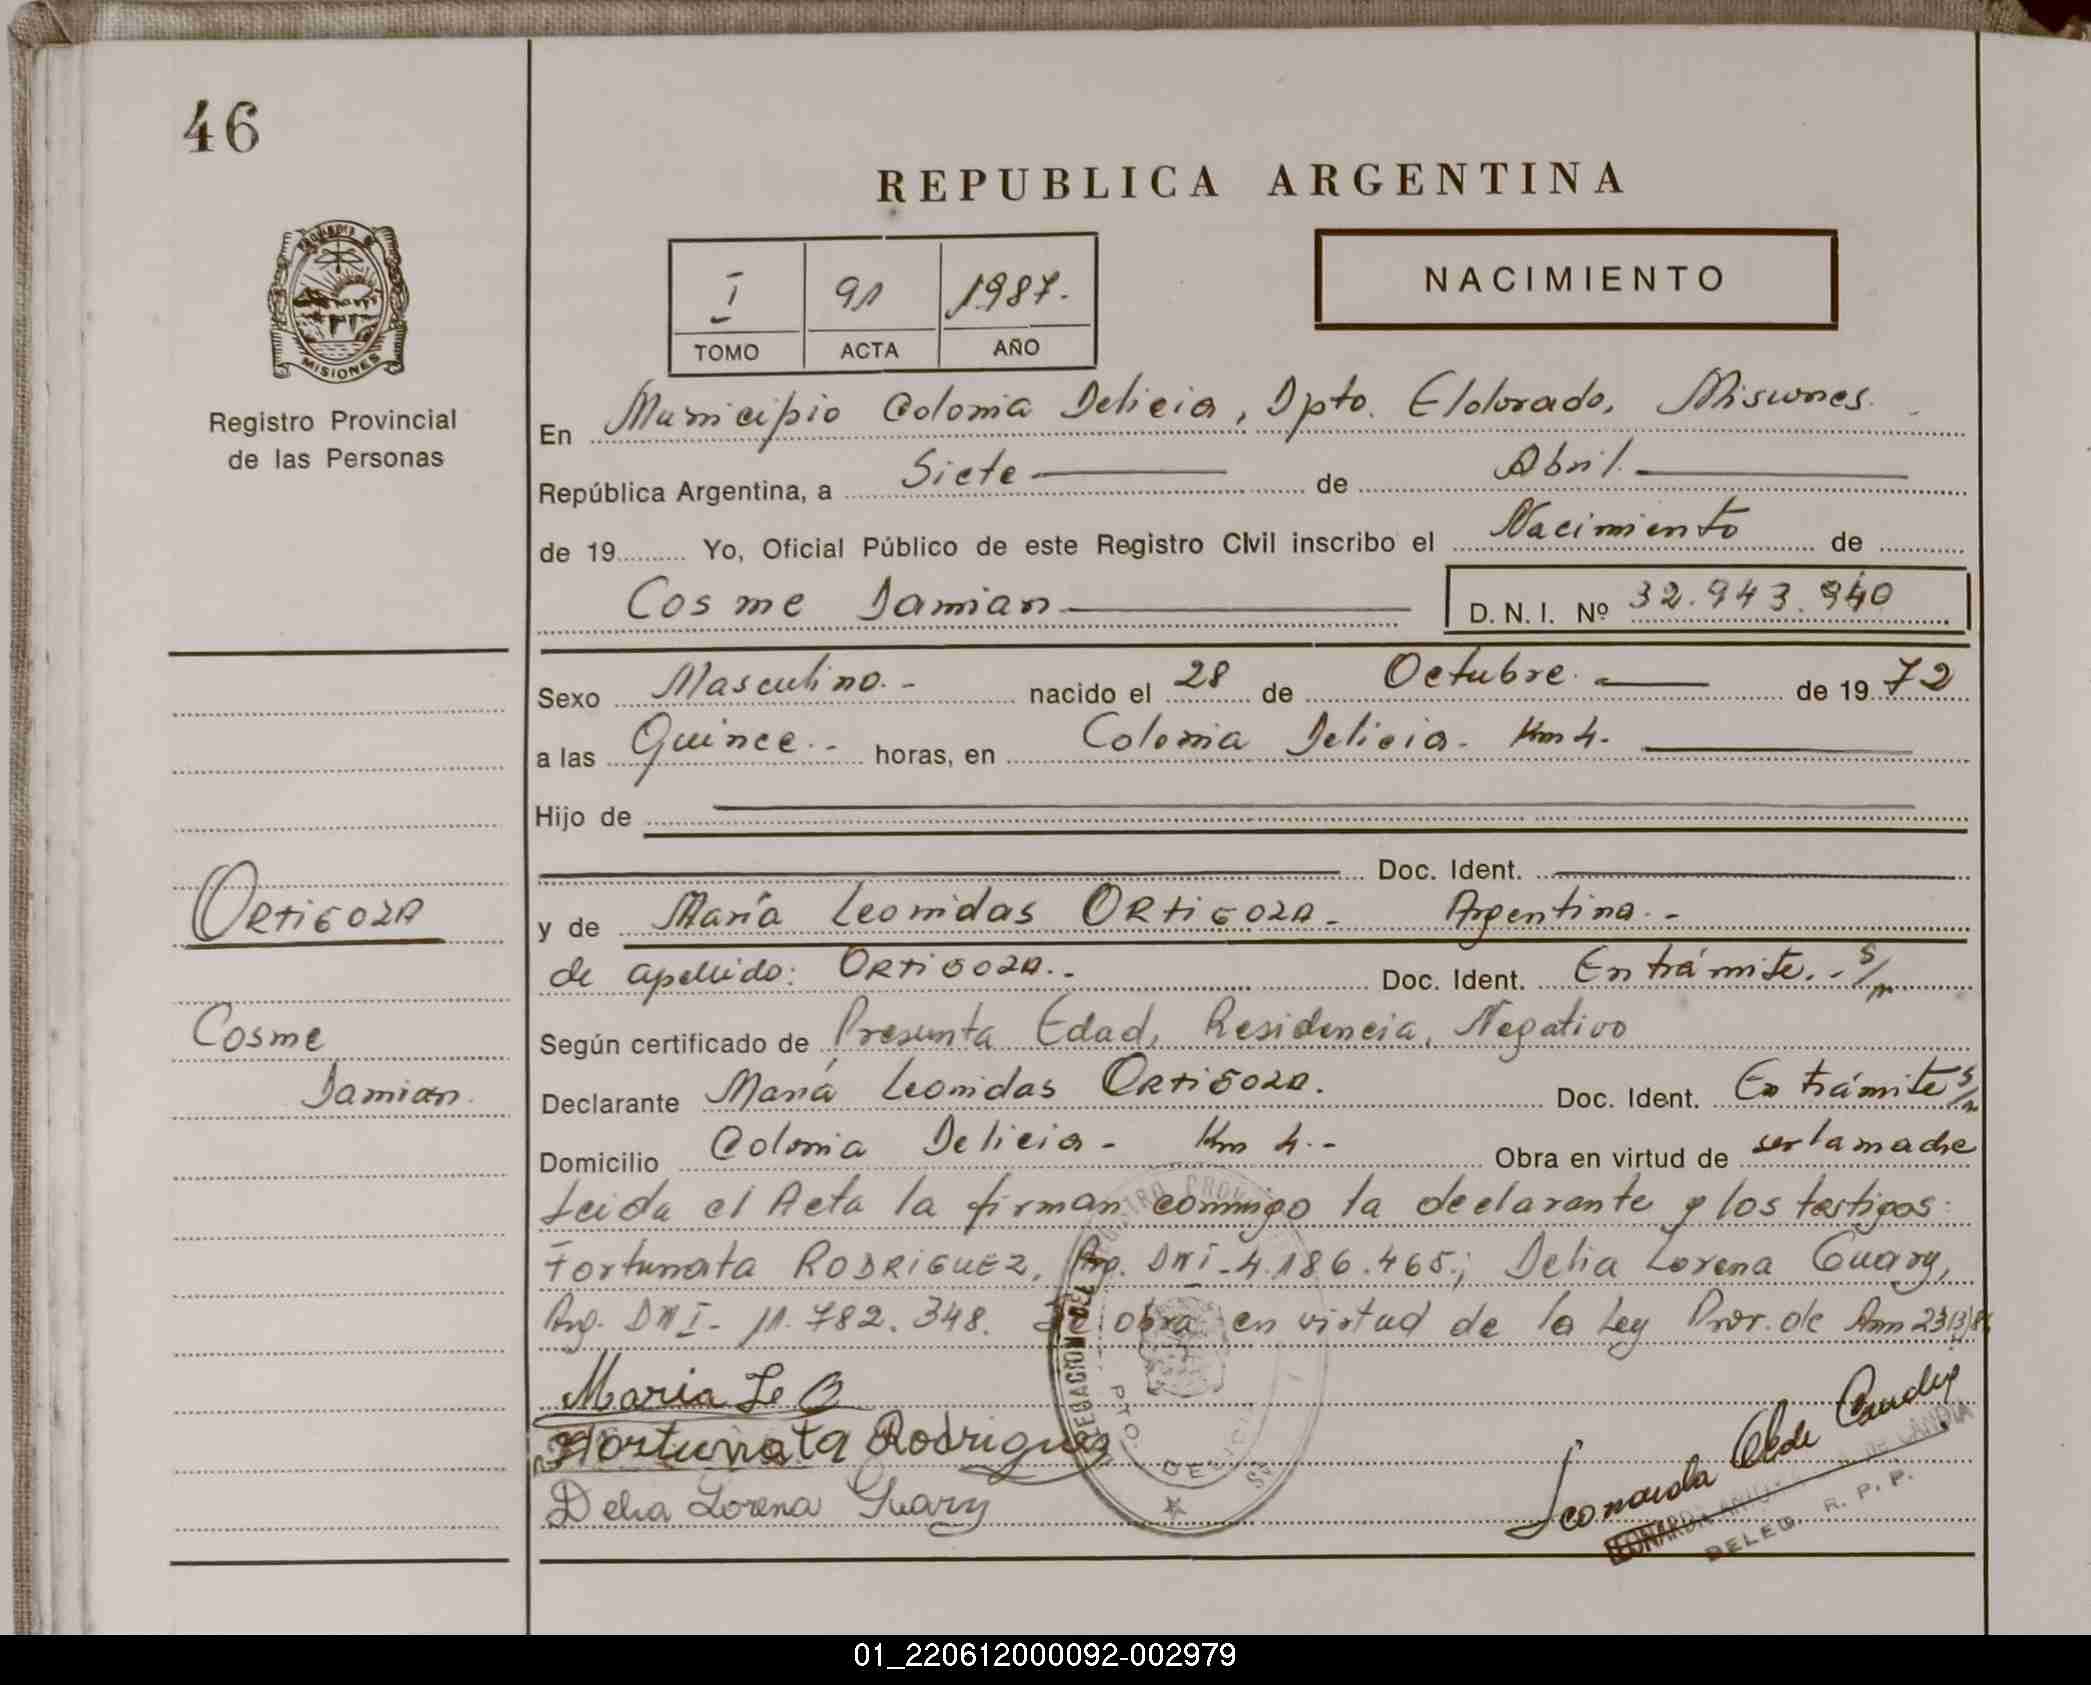 46
REPUBLICA ARGENTINA
PROVINCIA DE
MISIONES
Registro Provincial
de las Personas
I 91 1987.-
TOMO ACTA AÑO
NACIMIENTO
En Municipio Colonia Delicia, Dpto. Eldorado, Misiones.
República Argentina, a Siete de Abril.
de 19 Yo, Oficial Público de este Registro Civil inscribo el Nacimiento de
Cosme Damian D. N. I. Nº 32.943.940
Sexo Masculino.- nacido el 28 de Octubre. de 19 72
a las Quince.- horas, en Colonia Delicia. Km 4.
Hijo de
Doc. Ident.
ORTIGOZA
y de María Leonidas ORTIGOZA.- Argentina.-
de apellido: ORTIGOZA.- Doc. Ident. En trámite.- s/n
Cosme
Según certificado de Presunta Edad, Residencia, Negativo
Damian.
Declarante María Leonidas ORTIGOZA. Doc. Ident. En trámite s/n
Domicilio Colonia Delicia - Km 4.- Obra en virtud de ser la madre
Leida el Acta la firman conmigo la declarante y los testigos:
Fortunata RODRIGUEZ, Arg. DNI-4.186.465.; Delia Lorena Guary,
Arg. DNI- 11.782.348. Se obra en virtud de la Ley Pror. de Amn
Maria Le O
Fortunata Rodriguez
Delia Lorena Guary
DELEG. R. P. P.
01_220612000092-002979